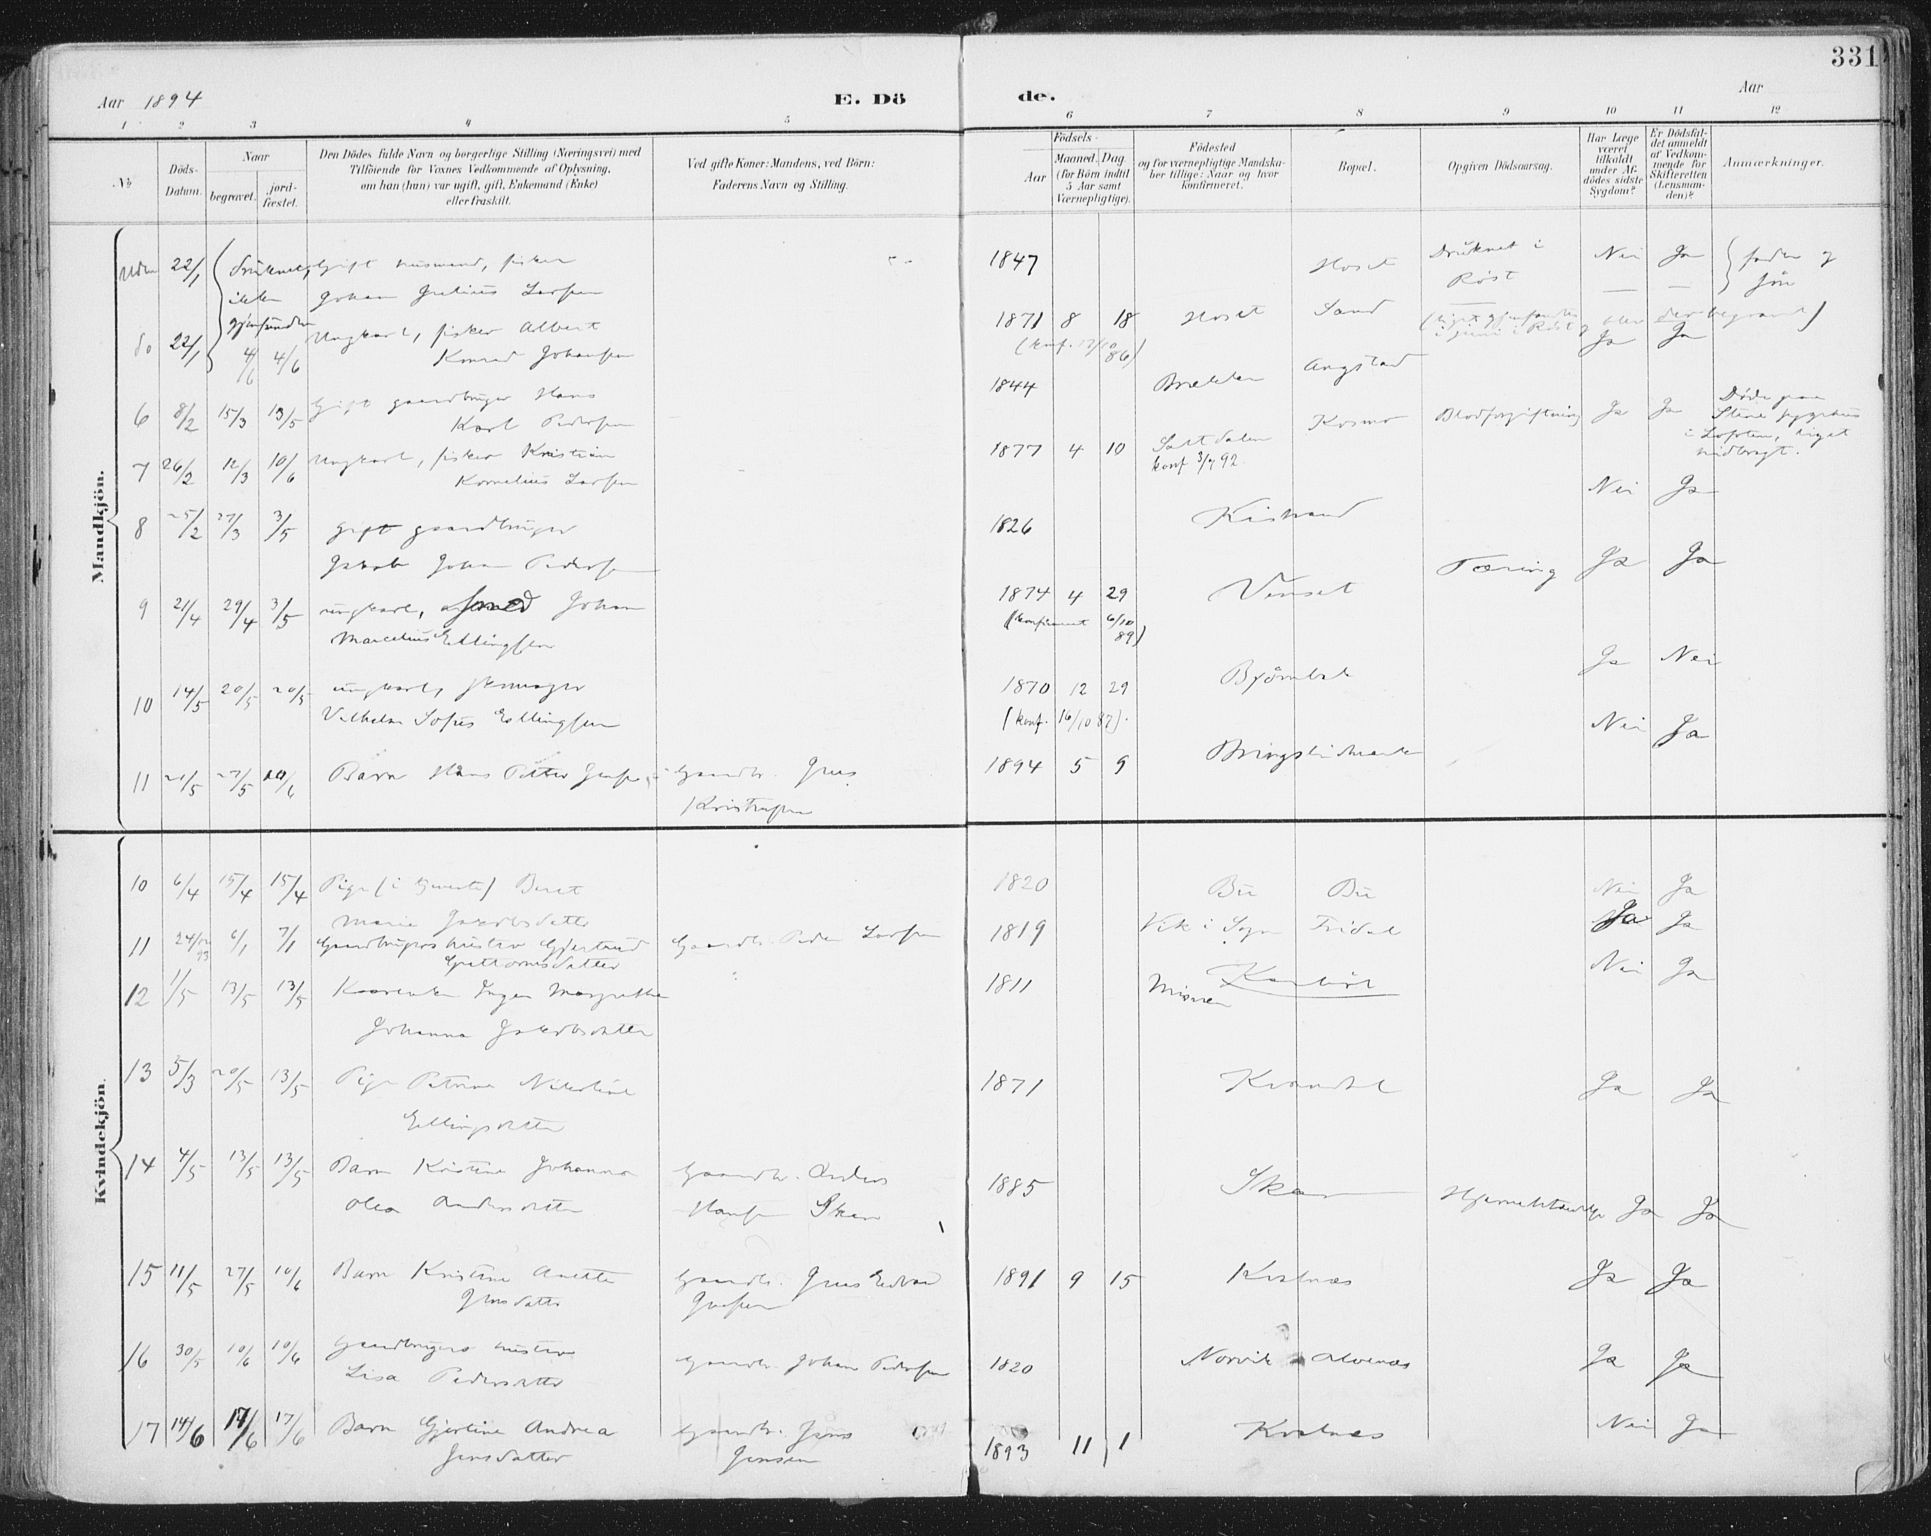 331
Aar 1894
E. Dö
de.
Aar
1 2 3 4 5 6 7 8 9 10 11 12
№
Döds-
Datum.
Naar
begravet.
jord-
fæstet.
Den Dödes fulde Navn og borgerlige Stilling (Næringsvei) med
Tilföiende for Voxnes Vedkommende af Oplysning,
om han (hun) var ugift, gift, Enkemand (Enke)
eller fraskilt.
Ved gifte Koner: Mandens, ved Börn:
Faderens Navn og Stilling.
Födsels-
Aar
Maaned. Dag
(for Börn indtil
5 Aar samt
Værnepligtige).
Födested
og for værnepligtige Mandska-
ber tillige: Naar og hvor
konfirmeret.
Bopæl.
Opgiven Dödsaarsag.
Har Læge
været
tilkaldt
under Af-
dödes sidste
Sygdom?
Er Dödsfal-
det anmeldt
af Vedkom-
mende for
Skifteretten
(Lensman-
den)?
Anmærkninger.
Mandkjön.
22/1 druknet, Gift husmand, fisker 1847 Hoset Druknet i Nei Ja fader og
ikke Johan Julius Larsen Røst Søn
gjenfunden
do 22/1 4/6 4/6 Ungkarl, fisker Albert 1871 8 18 Hoset Sand
Konrad Johansen (konf. 86)
i juni i Røst Ja Ja
6 8/2 15/3 13/5 Gift gaardbruger Hans 1844 Brækken Angstad
Karl Pedersen Kosmo Blodforgiftning Ja Ja Døde paa
Stene sygehus
i Lofoten, liget
nedbragt.
7 26/2 12/3 10/6 Ungkarl, fisker Kristian 1877 4 10 Saltdalen
Kornelius Larsen konf 3/7 92.
8 25/2 27/3 3/5 gift gaardbruger 1826 Kistrand Nei Ja
Jakob Johan Pedersen
9 21/4 29/4 3/5 ungkarl, Smed Johan 1874 4 29 Venset Tæring Ja Ja
Marcelius Ellingsen (konfirmeret 6/10 89)
10 14/5 20/5 20/5 ungkarl, skomager 1870 12 29 Bjørnbak Ja Nei
Vilhelm Sofus Ellingsen (konf. 16/10 87).
11 21/5 27/5 10/6 Barn Hans Petter Jensen Gaardbr. Jens 1894 5 9 Bringslimark Nei Ja
Kristensen
Kvindekjön.
10 6/4 15/4 15/4 Pige Beret 1820 Bø Bø Nei Ja
Marie Jakobsdatter
11 24/12 93 6/1 7/1 Gaardbrugers hustru Gjertrud Gaardbr. Peder Larsen 1819 Vik i Sogn Ja Ja
Guttormsdatter
12 1/5 13/5 13/5 Kaarenke Inger Margrethe 1811 Misvær Nei Ja
Johanna Jakobsdatter
13 5/3 20/5 13/5 Pige Petrine Nikoline 1871 Kvandal Ja Ja
Ellingsdatter
14 4/5 13/5 13/5 Barn Kristine Johanna Gaardbr. Anders 1885 Skar Ja Ja
Olea Andersdatter Hansen Skar
15 11/5 27/5 10/6 Barn Kristine Anette Gaardbr. Jens Edvard 1891 9 15 Kvalnæs Ja Ja
Jensdatter Jensen
16 30/5 10/6 10/6 Gaardbrugers hustru Gaardbr. Johan Pedersen 1820 Norvik Alvenæs Ja Ja
Lisa Pedersdatter
17 14/6 17/6 17/6 Barn Gjertine Andrea Gaardbr. Jens 1893 11 1 Kvalnæs Nei Ja
Jensdatter Jensen